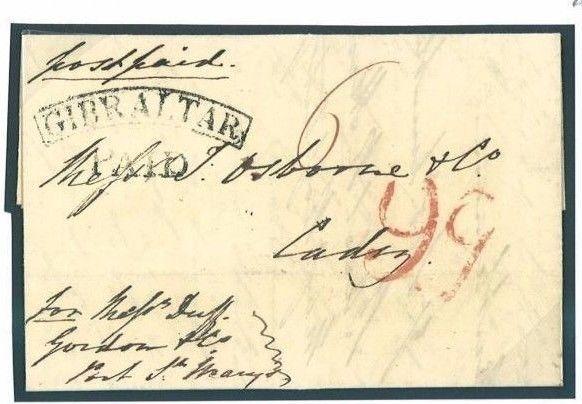 postpaid.
GIBRALTAR
PAID
6
Messrs. T. Osborne & Co
Cadiz
9 9
for Messrs Duff
Gordon & Co
Port St. Marys